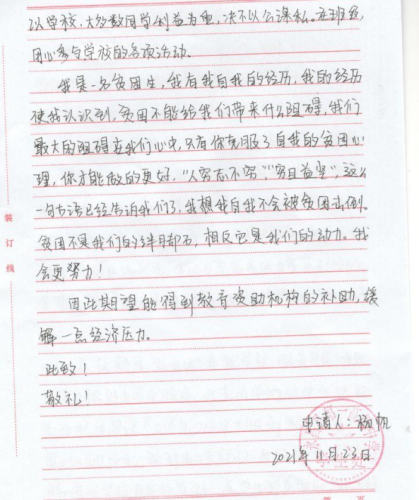 以学校,大多数同学利益为重,决不以公谋私。在班级,
团心参与学校的各项活动.
我是一名贫困生,我有我自我的经历,我的经历
使我认识到,贫困不能给我们带来什么阻碍,我们
最大的阻碍在我们心中,只有你克服了自我的贫困心
理,你才能做的更好,“人穷志不穷”,“穷且益坚”,这么
一句古语已经告诉我们了,我想我自我不会被贫困击倒。
贫困不是我们的绊脚石,相反它是我们的动力。我
会更努力!
因此期望能得到教育资助机构的补助,缓
解一点经济压力。
此致!
敬礼!
申请人:杨帆
2021年11月23日
装
订
线